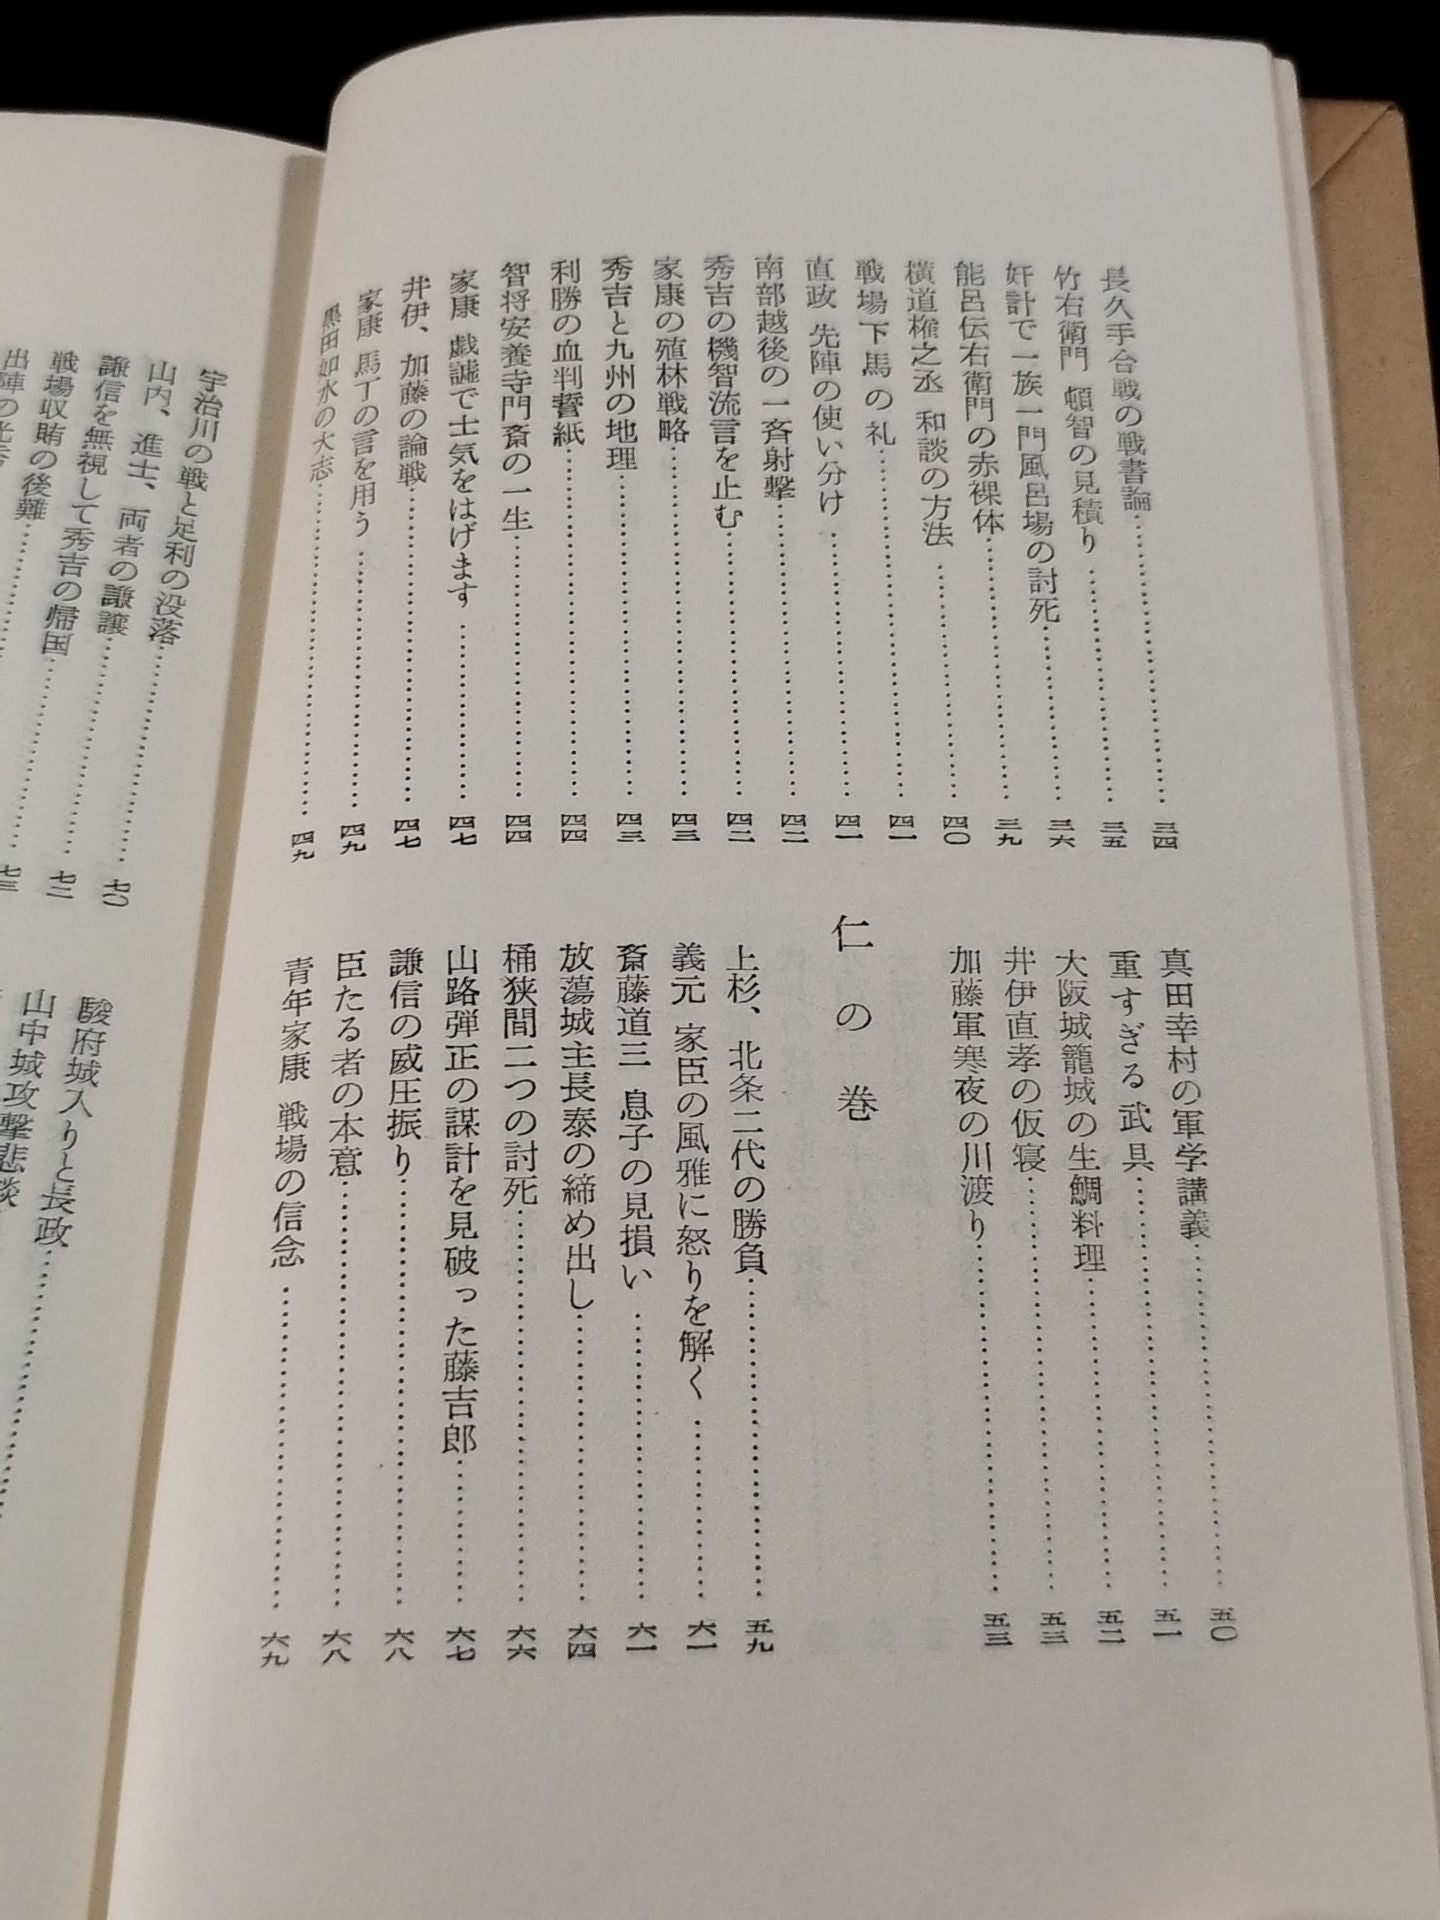 長久手台戦の戦書論…………三四
竹右衛門 頓智の見積り…………三五
奸計で一族一門風呂場の討死…………三六
能呂伝右衛門の赤裸体…………三九
横道権之丞 和談の方法…………四〇
戦場下馬の礼…………四一
直政 先陣の使い分け…………四一
南部越後の一斉射撃…………四二
秀吉の機智流言を止む…………四二
家康の殖林戦略…………四三
秀吉と九州の地理…………四三
利勝の血判誓紙…………四四
智将安養寺門斎の一生…………四四
家康 戯謔で士気をはげます…………四七
井伊、加藤の論戦…………四七
家康 馬丁の言を用う…………四九
黒田如水の大志…………四九
真田幸村の軍学講義…………五〇
重すぎる武具…………五一
大阪城籠城の生鯛料理…………五二
井伊直孝の仮寝…………五三
加藤軍寒夜の川渡り…………五三
仁の巻
上杉、北条二代の勝負…………五九
義元 家臣の風雅に怒りを解く…………六一
斎藤道三 息子の見損い…………六一
放蕩城主長泰の締め出し…………六四
桶狭間二つの討死…………六六
山路弾正の謀計を見破った藤吉郎…………六七
謙信の威圧振り…………六八
臣たる者の本意…………六八
青年家康 戦場の信念…………六九
宇治川の戦と足利の没落…………七〇
山内、進士、両者の謙譲…………七二
謙信を無視して秀吉の帰国…………七三
戦場収賄の後難
出陣の
駿府城入りと長政
山中城攻撃悲談